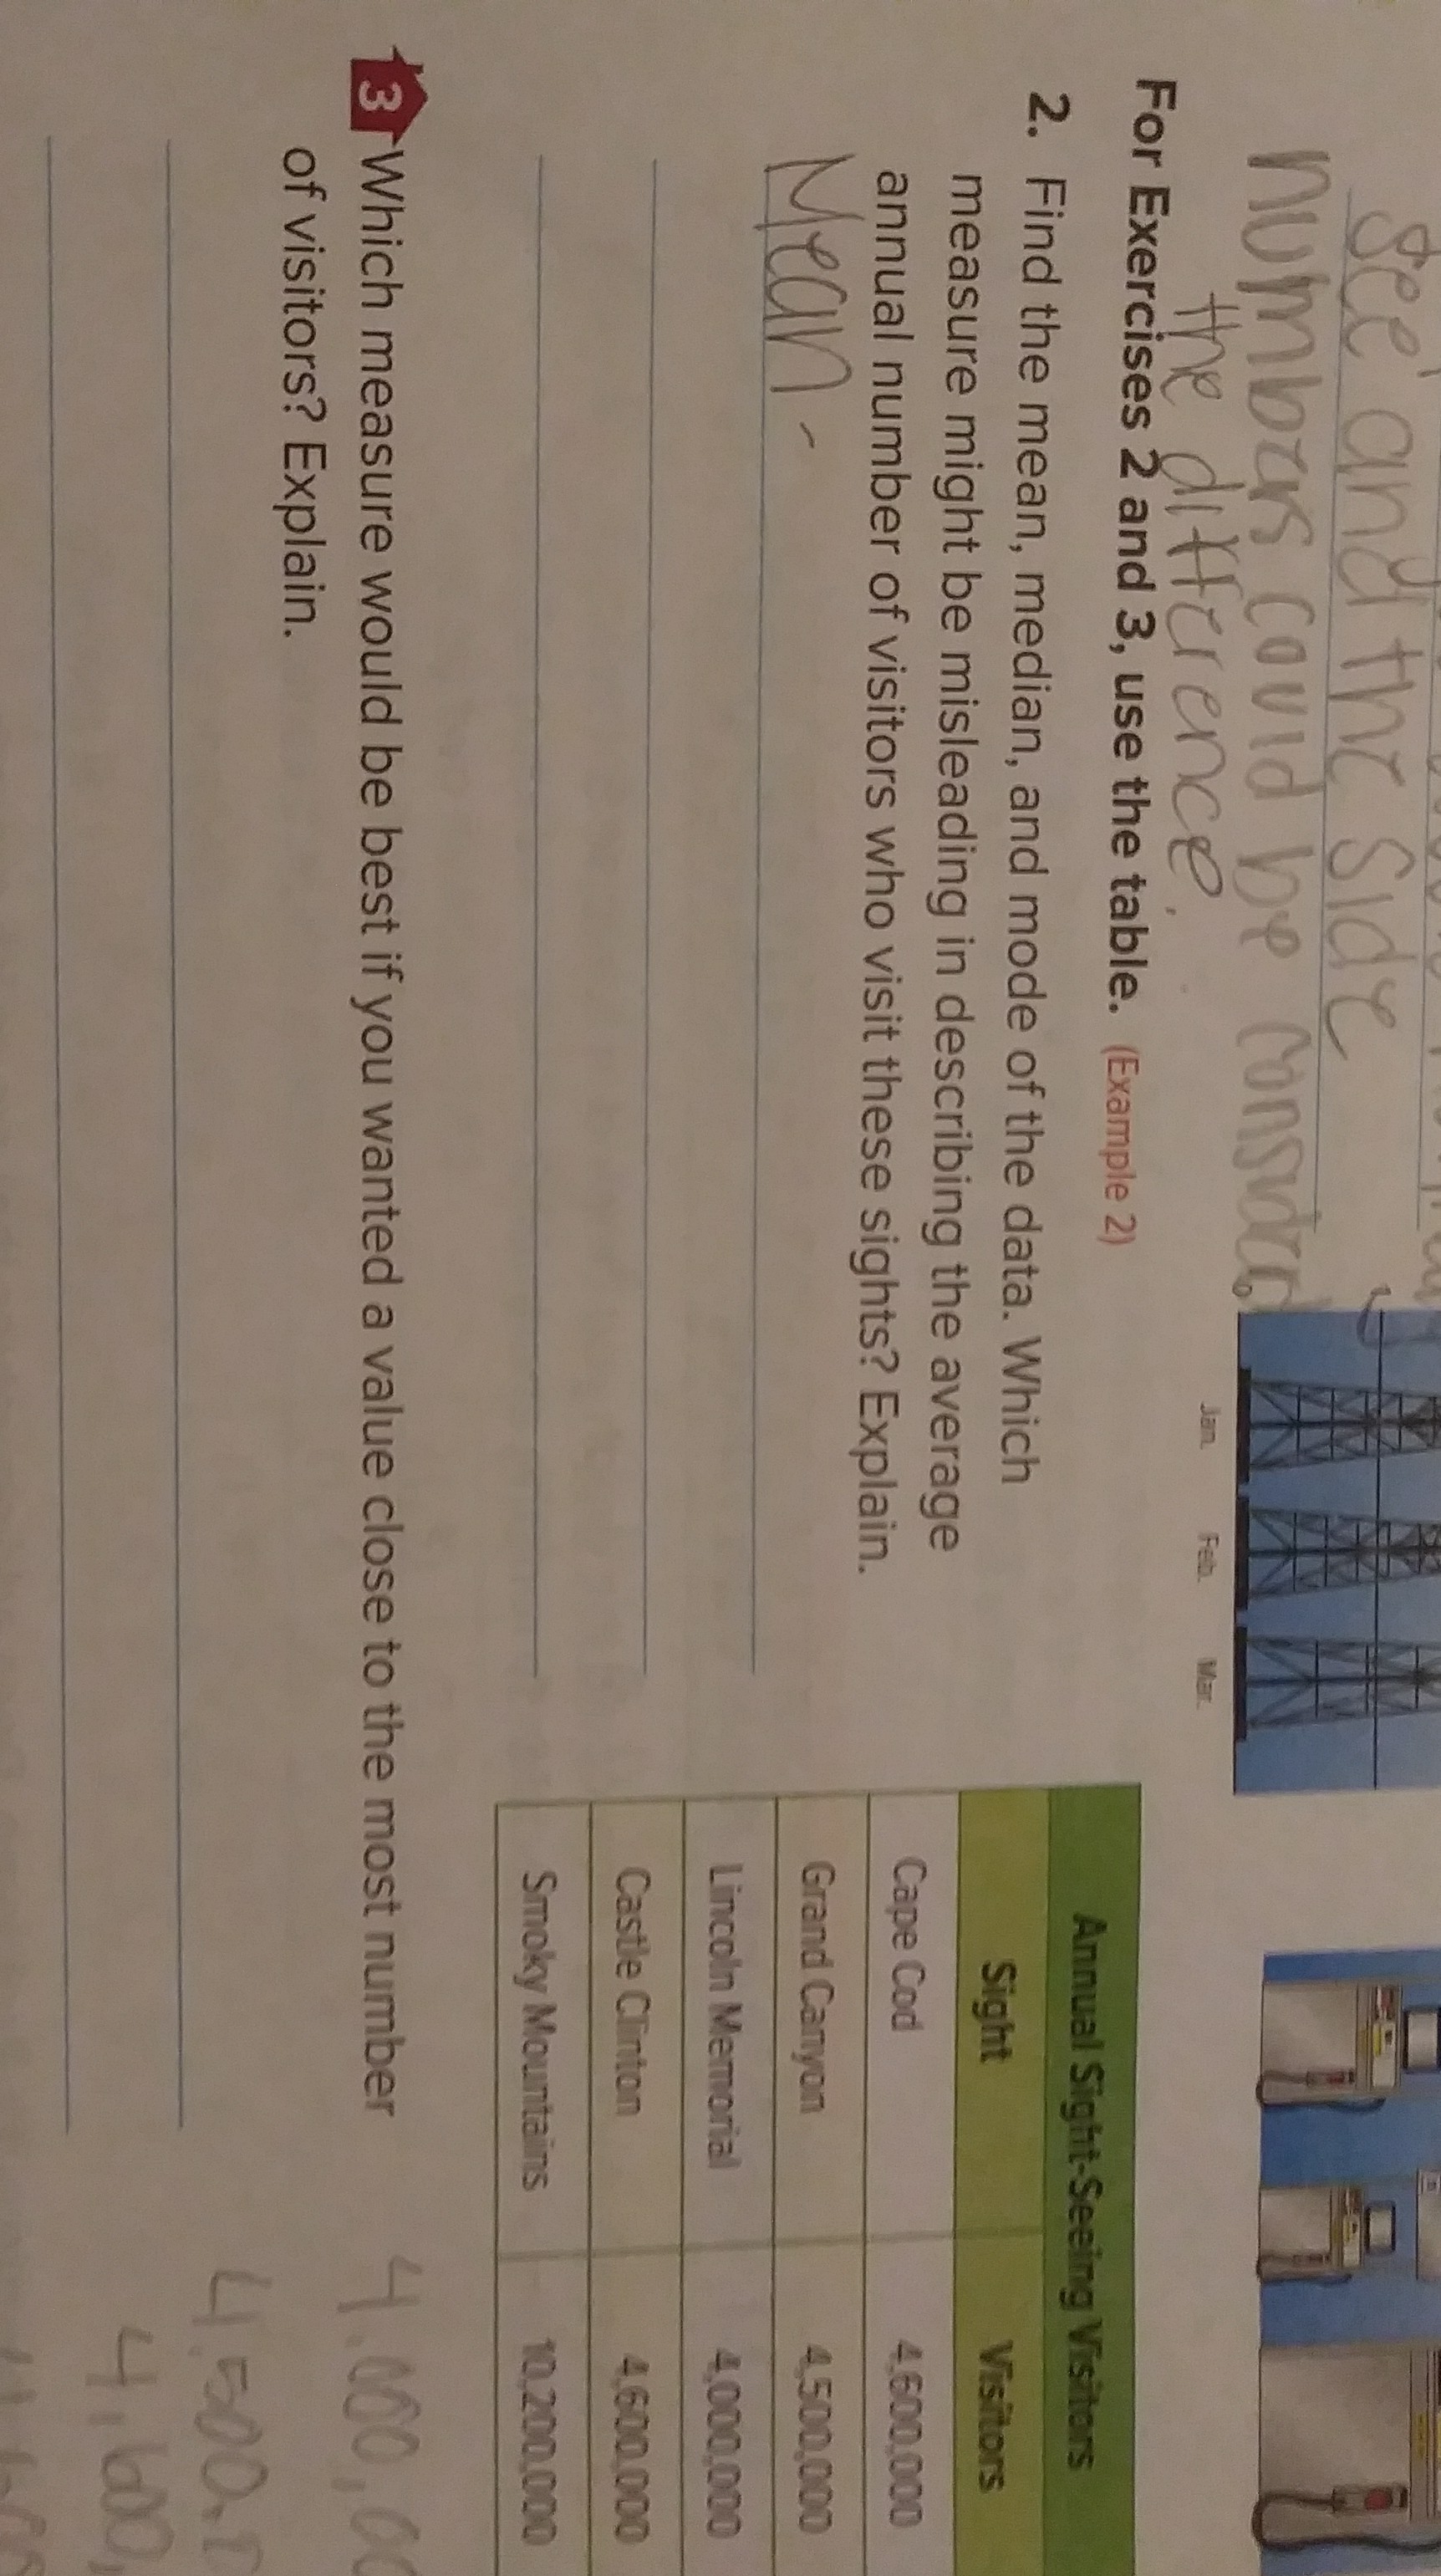 see and the side
numbers could be consider
the difference.
Jan. Feb. Mar.
For Exercises 2 and 3, use the table. (Example 2)
2. Find the mean, median, and mode of the data. Which
measure might be misleading in describing the average
annual number of visitors who visit these sights? Explain.
Mean -
Annual Sight-Seeing Visitors
Sight Visitors
Cape Cod 4,600,000
Grand Canyon 4,500,000
Lincoln Memorial 4,000,000
Castle Clinton 4,600,000
Smoky Mountains 10,200,000
3 Which measure would be best if you wanted a value close to the most number
of visitors? Explain.
4,000,00
4,500,0
4,600,